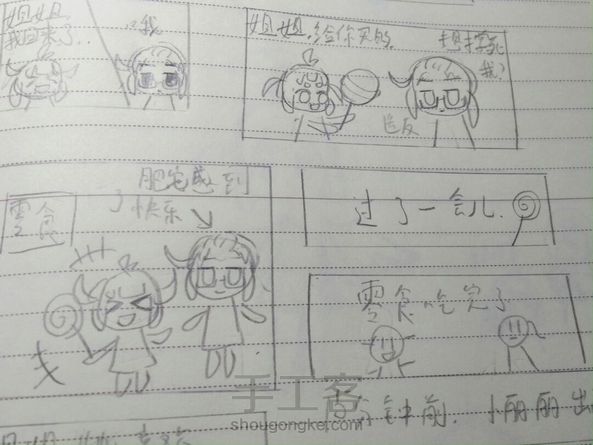 姐姐
我回来了..
..我
姐姐.给你买的.
想撑死
我?
造反
肥宅感到
了快乐
零食
过了一会儿.
零食吃完了
手工客
shougongke.com
分钟前.小丽丽出